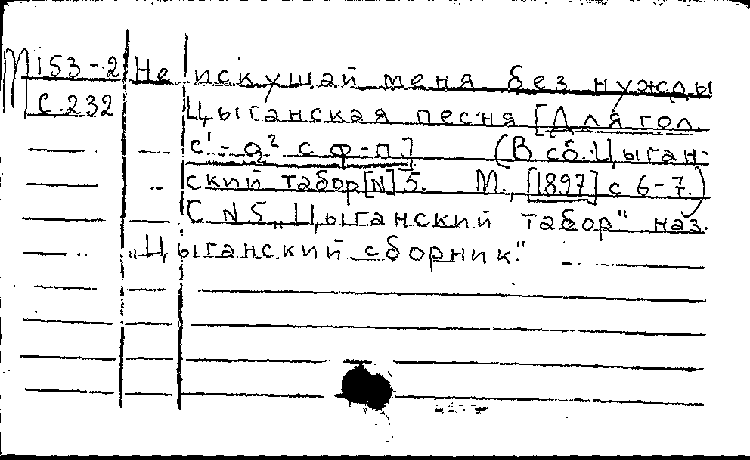 М153-2 Не искушай меня без нужды
С 232 Цыганская песня [Для гол.
c¹-g² с ф-п.] (В сб. Цыган-
ский табор [N] 5. М., [1897] с 6-7.)
С N 5 „Цыганский табор" наз.
„Цыганский сборник."